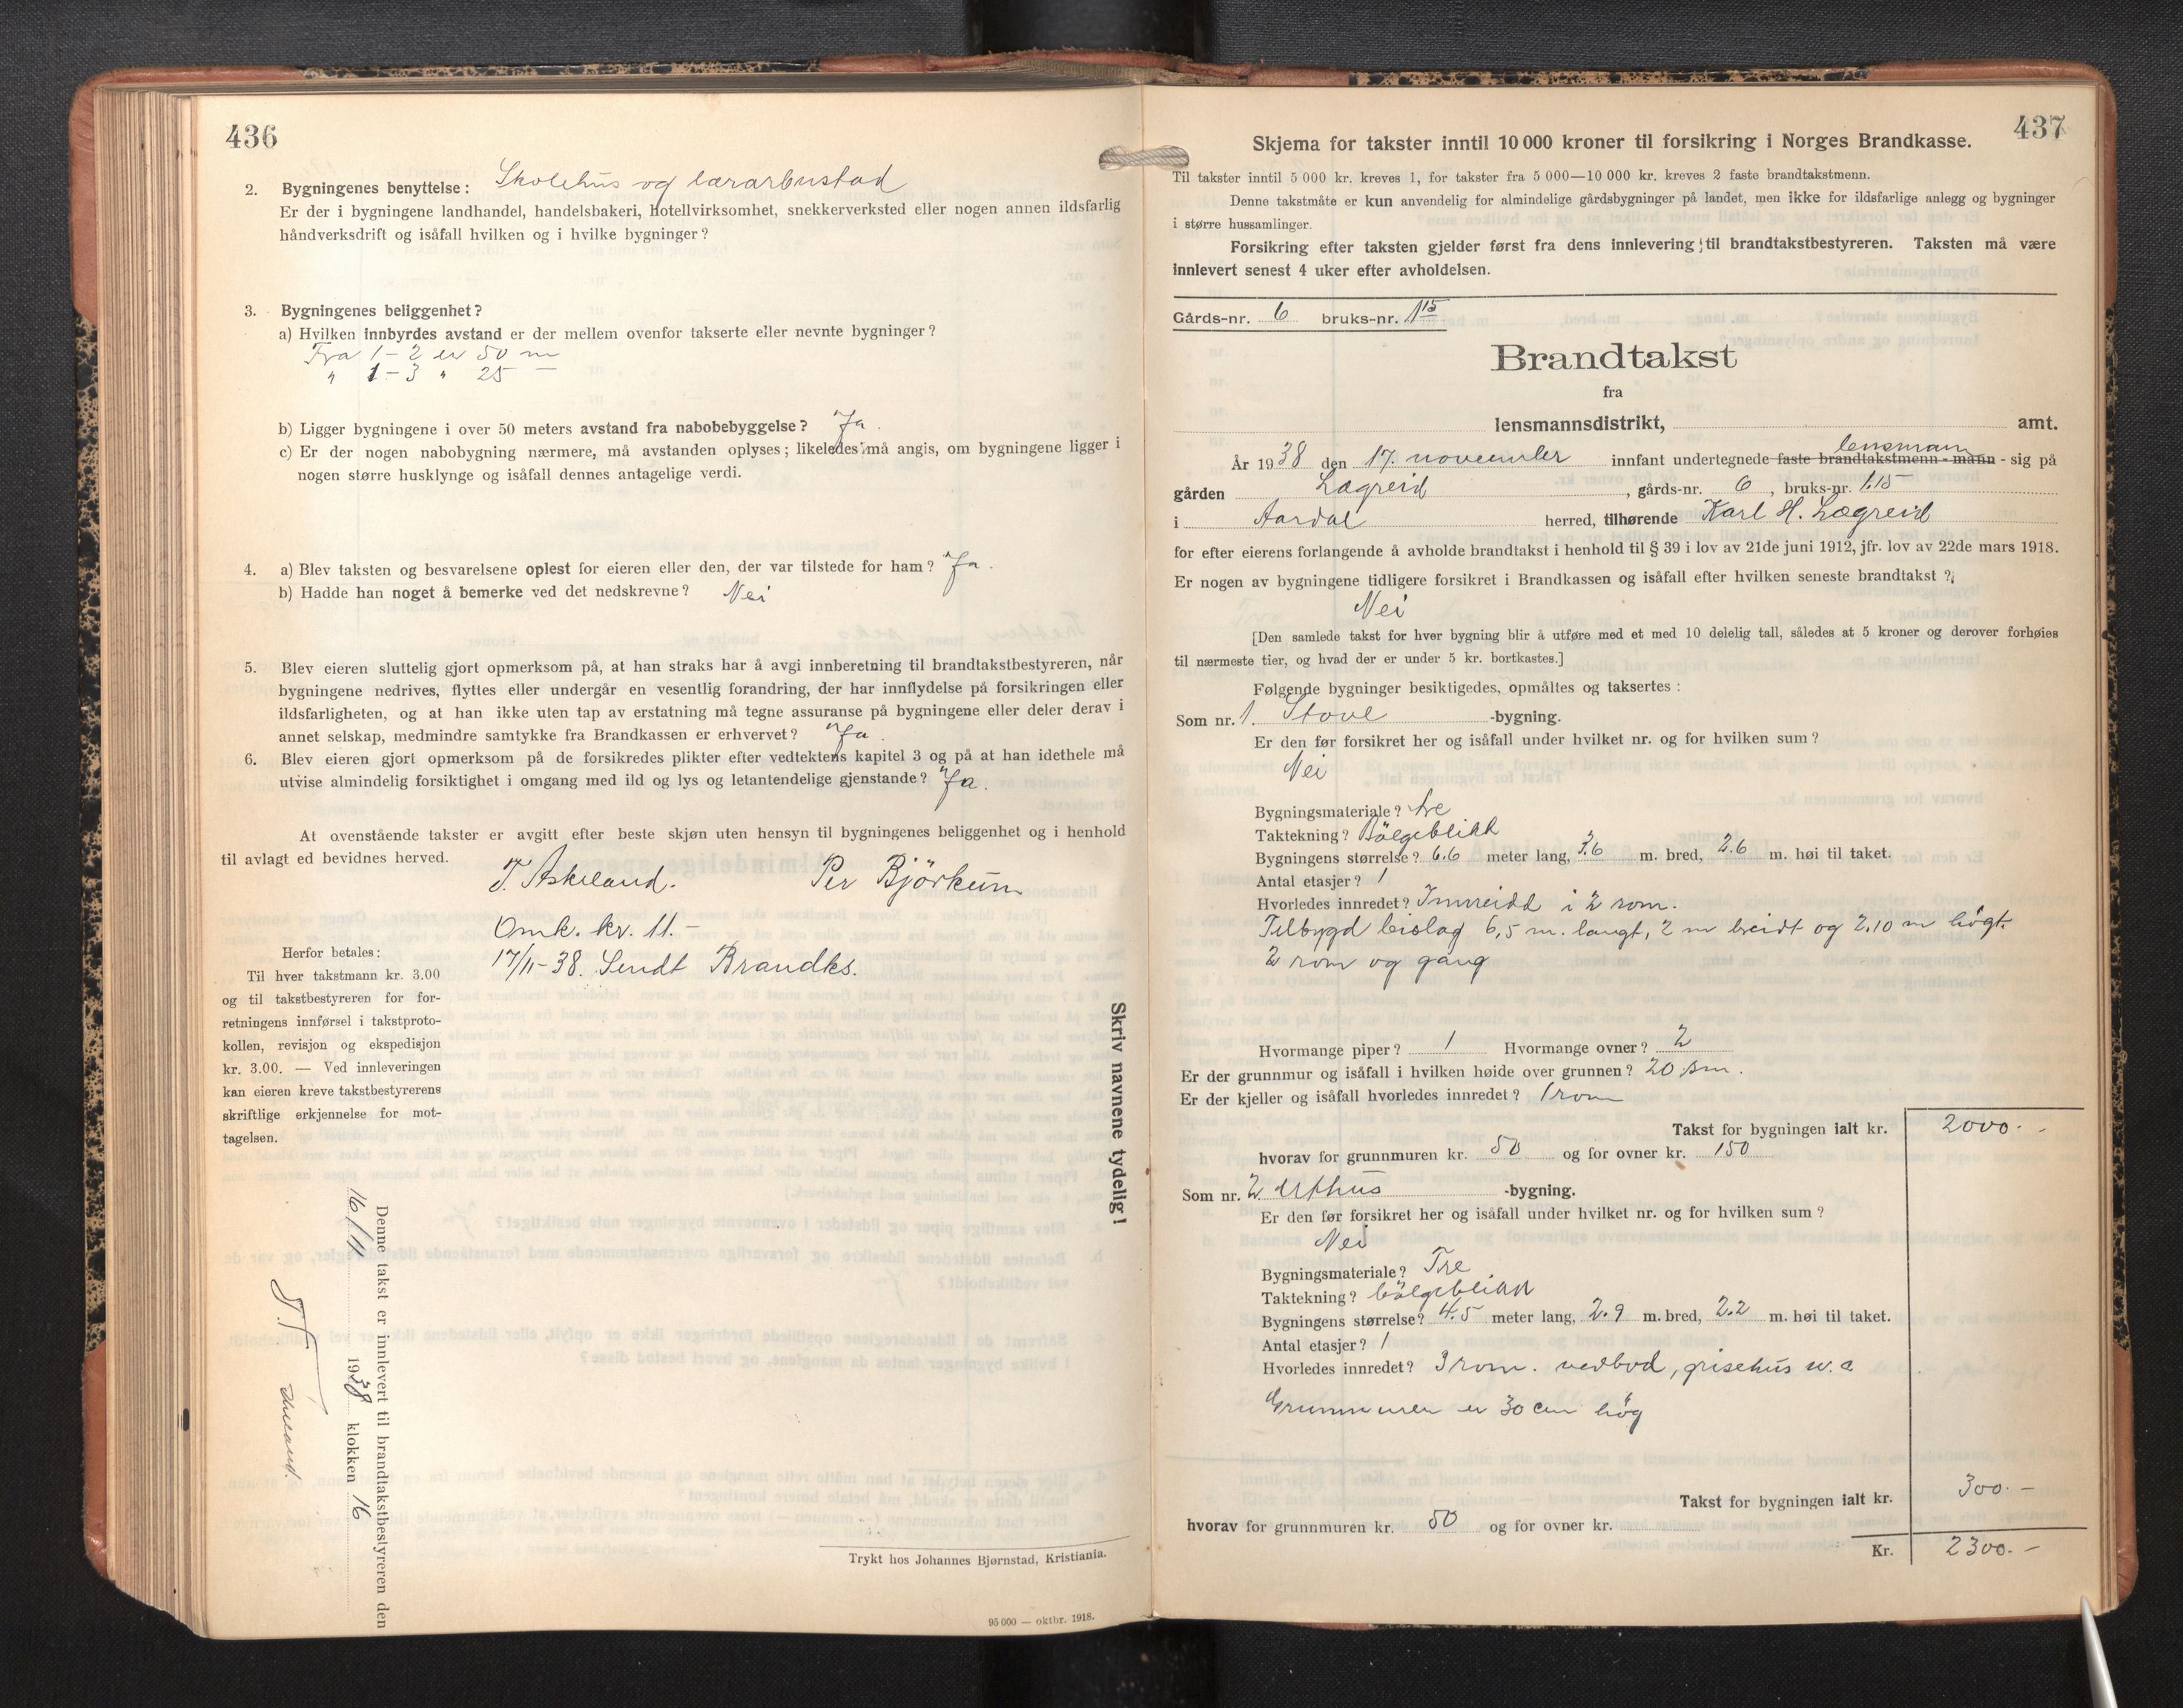 436
2. Bygningenes benyttelse: Skolehus og lærarbustad
Er der i bygningene landhandel, handelsbakeri, hotellvirksomhet, snekkerverksted eller nogen annen ildsfarlig
håndverksdrift og isåfall hvilken og i hvilke bygninger?
3. Bygningenes beliggenhet?
a) Hvilken innbyrdes avstand er der mellem ovenfor takserte eller nevnte bygninger?
Fra 1 – 2 er 50 m
" 1 – 3 " 25 —
b) Ligger bygningene i over 50 meters avstand fra nabobebyggelse? Ja.
c) Er der nogen nabobygning nærmere, må avstanden oplyses; likeledes må angis, om bygningene ligger i
nogen større husklynge og isåfall dennes antagelige verdi.
4. a) Blev taksten og besvarelsene oplest for eieren eller den, der var tilstede for ham? Ja.
b) Hadde han noget å bemerke ved det nedskrevne? Nei
5. Blev eieren sluttelig gjort opmerksom på, at han straks har å avgi innberetning til brandtakstbestyreren, når
bygningene nedrives, flyttes eller undergår en vesentlig forandring, der har innflydelse på forsikringen eller
ildsfarligheten, og at han ikke uten tap av erstatning må tegne assuranse på bygningene eller deler derav i
annet selskap, medmindre samtykke fra Brandkassen er erhvervet? Ja.
6. Blev eieren gjort opmerksom på de forsikredes plikter efter vedtektens kapitel 3 og på at han idethele må
utvise almindelig forsiktighet i omgang med ild og lys og letantendelige gjenstande? Ja.
At ovenstående takster er avgitt efter beste skjøn uten hensyn til bygningenes beliggenhet og i henhold
til avlagt ed bevidnes herved.
T. Askeland. Per Björkum
Omk. kr. 11.-
17/11-38. Sendt Brandks.
Herfor betales:
Til hver takstmann kr. 3.00
og til takstbestyreren for for-
retningens innførsel i takstproto-
kollen, revisjon og ekspedisjon
kr. 3.00. — Ved innleveringen
kan eieren kreve takstbestyrerens
skriftlige erkjennelse for mot-
tagelsen.
Skriv navnene tydelig!
Denne takst er innlevert til brandtakstbestyreren den
16/11 1938 klokken 16
Trykt hos Johannes Bjørnstad, Kristiania.
95 000 — oktbr. 1918.
437
Skjema for takster inntil 10 000 kroner til forsikring i Norges Brandkasse.
Til takster inntil 5 000 kr. kreves 1, for takster fra 5 000—10 000 kr. kreves 2 faste brandtakstmenn.
Denne takstmåte er kun anvendelig for almindelige gårdsbygninger på landet, men ikke for ildsfarlige anlegg og bygninger
i større hussamlinger.
Forsikring efter taksten gjelder først fra dens innlevering til brandtakstbestyreren. Taksten må være
innlevert senest 4 uker efter avholdelsen.
Gårds-nr. 6 bruks-nr. 1 15
Brandtakst
fra
lensmannsdistrikt, amt.
År 1938 den 17. november innfant undertegnede faste brandtakstmenn - mann - lensmann sig på
gården Lægreid, gårds-nr. 6, bruks-nr. 1.15
i Aardal herred, tilhørende Karl H. Lægreid
for efter eierens forlangende å avholde brandtakst i henhold til § 39 i lov av 21de juni 1912, jfr. lov av 22de mars 1918.
Er nogen av bygningene tidligere forsikret i Brandkassen og isåfall efter hvilken seneste brandtakst?
Nei
[Den samlede takst for hver bygning blir å utføre med et med 10 delelig tall, således at 5 kroner og derover forhøies
til nærmeste tier, og hvad der er under 5 kr. bortkastes.]
Følgende bygninger besiktigedes, opmåltes og taksertes:
Som nr. 1. Stove -bygning.
Er den før forsikret her og isåfall under hvilket nr. og for hvilken sum?
Nei
Bygningsmateriale? tre
Taktekning? Bölgeblikk
Bygningens størrelse? 6.6 meter lang, 3.6 m. bred, 2.6 m. høi til taket.
Antal etasjer? 1
Hvorledes innredet? Innreidd i 2 rom.
Tilbygd bislag 6,5 m. langt, 2 m breidt og 2.10 m högt.
2 rom og gang
Hvormange piper? 1 Hvormange ovner? 2
Er der grunnmur og isåfall i hvilken høide over grunnen? 20 sm.
Er der kjeller og isåfall hvorledes innredet? 1 rom
Takst for bygningen ialt kr. 2000.-
hvorav for grunnmuren kr. 50 og for ovner kr. 150
Som nr. 2. Uthus -bygning.
Er den før forsikret her og isåfall under hvilket nr. og for hvilken sum?
Nei
Bygningsmateriale? Tre
Taktekning? bölgeblikk
Bygningens størrelse? 4.5 meter lang, 2.9 m. bred, 2.2 m. høi til taket.
Antal etasjer? 1
Hvorledes innredet? 3 rom. vedbod, grisehus m.a
Grunnmuren er 30 cm hög
Takst for bygningen ialt kr. 300.-
hvorav for grunnmuren kr. 50 og for ovner kr.
Kr. 2300.-